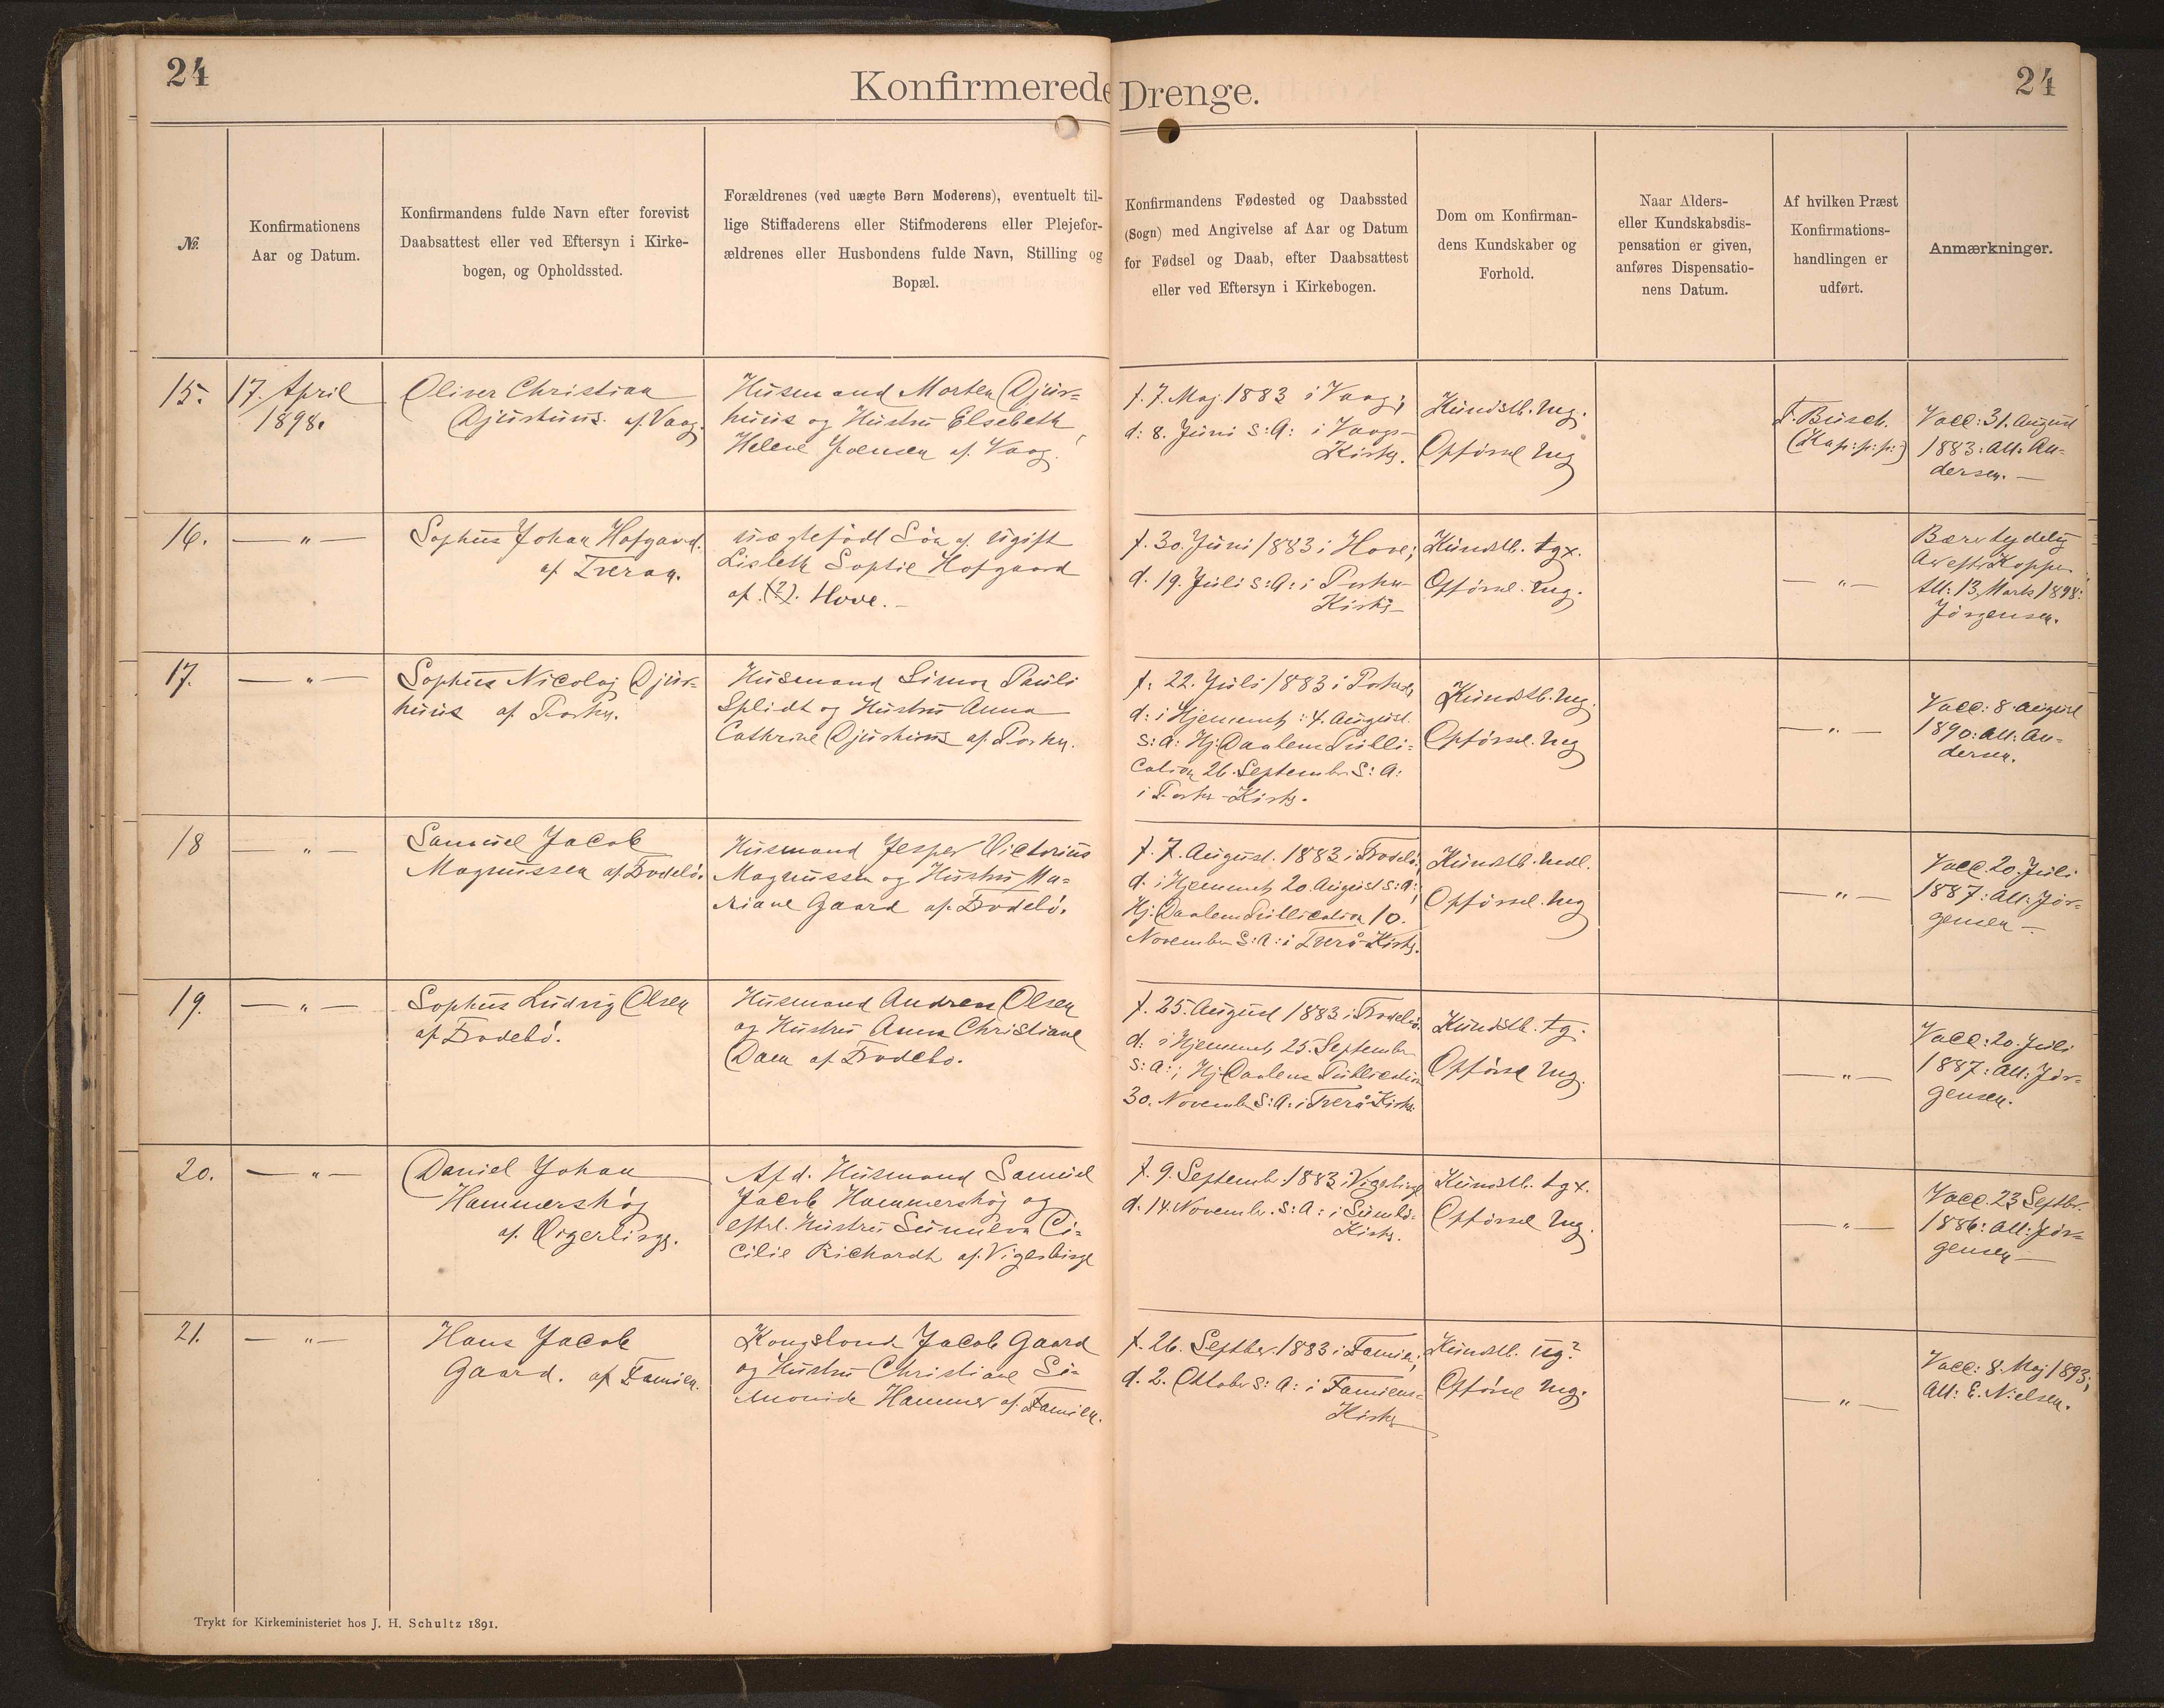 24
Konfirmerede Drenge.
24
№
Konfirmationens
Aar og Datum.
Konfirmandens fulde Navn efter forevist
Daabsattest eller ved Eftersyn i Kirke-
bogen, og Opholdssted.
Forældrenes (ved uægte Børn Moderens), eventuelt til-
lige Stiffaderens eller Stifmoderens eller Plejefor-
ældrenes eller Husbondens fulde Navn, Stilling og
Bopæl.
Konfirmandens Fødested og Daabssted
(Sogn) med Angivelse af Aar og Datum
for Fødsel og Daab, efter Daabsattest
eller ved Eftersyn i Kirkebogen.
Dom om Konfirman-
dens Kundskaber og
Forhold.
Naar Alders-
eller Kundskabsdis-
pensation er given,
anføres Dispensatio-
nens Datum.
Af hvilken Præst
Konfirmations-
handlingen er
udført.
Anmærkninger.
15.
17. April
1898.
Oliver Christian
Djurhuus. af Vaag.
Husmand Morten Djur=
huus og Hustru Elsebeth
Helene Joensen af Vaag.
f. 7. Maj 1883 i Vaag;
d: 8. Juni S: A: i Vaags-
Kirke.
Kundsk. mg.
Opførsel mg
F. Busch.
(Kap: p: p:)
Vacc: 31. August
1883: Att: An=
dersen. —
16.
— " —
Sophus Johan Hofgaard.
af Tveraa.
Uægtefødt Søn af ugift
Lisbeth Sophie Hofgaard
af (?). Hove. —
f. 30. Juni 1883 i Hove;
d. 19. Juli S: A: i Porkere-
Kirke —
Kundsk. tgx.
Opførsel. mg.
— " —
Bærer tydelig
Ar efter Kopper.
Att: 13. Marts 1898:
Jørgensen.
17.
— " —
Sophus Nicolaj Djur=
huus af Porkere.
Husmand Simon Pauli
Splidt og Hustru Anna
Cathrine Djurhuus af Porkere.
f. 22. Juli 1883 i Porkere,
d: i Hjemmet: 4. August.
S: A: Hj: Daabens Publi=
cation 26. September S: A:
i Porkere-Kirke.
Kundsk. mg.
Opførsel. mg
— " —
Vacc: 8 August
1890: Att: An=
dersen.
18
— " —
Samuel Jacob
Magnussen af Frodebø.
Husmand Jesper Victorius
Magnussen og Hustru Ma=
riane Gaard af Frodebø.
f. 7. August. 1883 i Frodebø;
d. i Hjemmet 20. August S: A;
Hj. Daabens Publication 10.
November S: A: i Tverå-Kirke.
Kundsk. mdl.
Opførsel. mg
— " —
Vacc. 20. Juli
1887: Att: Jør=
gensen —
19.
— " —
Sophus Ludvig Olsen
af Frodebø.
Husmand Andreas Olsen
og Hustru Anna Christiane
Dam af Frodebø.
f. 25. August 1883 i Frodebø.
d: i Hjemmet 25. September
S: A:; Hj. Daabens Publication
30. November S: A: i Tverå-Kirke.
Kundsk. tg.
Opførsel mg.
— " —
Vacc: 20. Juli
1887: Att: Jør=
gensen.
20.
— " —
Daniel Johan
Hammershøj
af. Vigerbirge.
Afd. Husmand Samuel
Jacob Hammershøj og
efterl. Hustru Sunneva Ci=
cilie Richardt af. Vigerbirge
f. 9. Septemb. 1883 i Vigerbirge
d. 14. November. S: A: i Sumbø-
Kirke.
Kundsk. tgx.
Opførsel mg.
— " —
Vacc. 23 Septbr.
1886: Att: Jør=
gensen —
21.
— " —
Hans Jacob
Gaard. af Famien.
Kongsbond Jacob Gaard
og Hustru Christiane Si=
monida Hammer af. Famien.
f. 26. Septber. 1883 i Famien;
d. 2. Oktober S: A: i Famiens=
Kirke
Kundsk. ug?
Opførsel mg.
— " —
Vacc: 8. Maj 1893;
Att: E. Nielsen.
Trykt for Kirkeministeriet hos J. H. Schultz 1891.